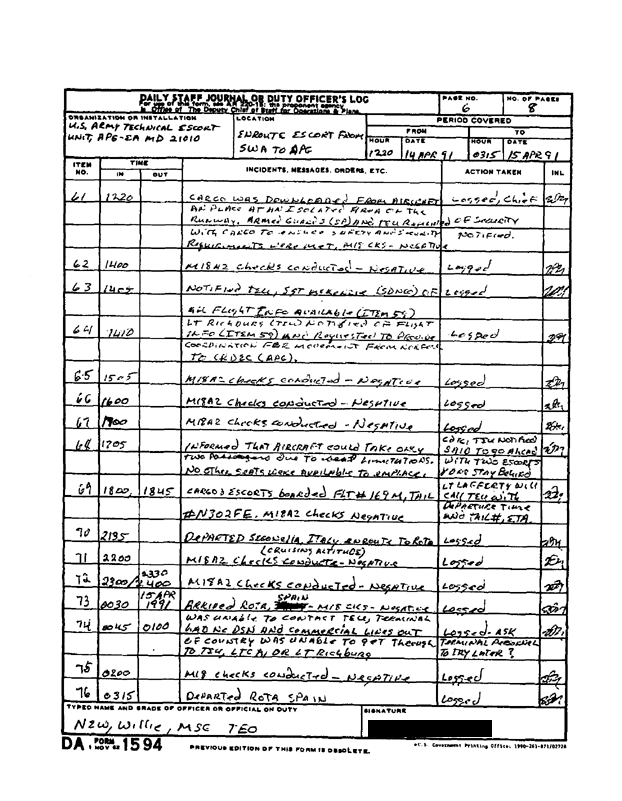 DAILY STAFF JOURNAL OR DUTY OFFICER'S LOG
For use of this form, see AR 220-15; the proponent agency
is Office of The Deputy Chief of Staff for Operations & Plans.
PAGE NO.
6
NO. OF PAGES
8
ORGANIZATION OR INSTALLATION
U.S. ARMY TECHNICAL ESCORT
UNIT, APG-EA MD 21010
LOCATION
ENROUTE ESCORT FROM
SWA TO APG
PERIOD COVERED
FROM TO
HOUR DATE HOUR DATE
1220 14 APR 91 0315 15 APR 91
ITEM NO. TIME IN OUT INCIDENTS, MESSAGES, ORDERS, ETC. ACTION TAKEN INL
61 1220 CARGO WAS DOWNLOADED FROM AIRCRAFT Logged, Chief
AN PLACE AT AN ISOLATED AREA ON THE
RUNWAY. ARMED GUARDS (SP) AND TEU REMAINED OF SECURITY
WITH CARGO TO ENSURE SAFETY AND SECURITY NOTIFIED.
REQUIREMENTS WERE MET. M18 CKS - NEGATIVE
62 1400 M18A2 Checks CONDUCTED - NEGATIVE Logged
63 1405 NOTIFIED TEU, SGT McKENZIE (SDNCO) OF Logged
ALL FLIGHT INFO AVAILABLE (ITEM 59)
64 1410 LT RICHBURG (TEU) NOTIFIED OF FLIGHT Logged
INFO (ITEM 59) AND REQUESTED TO PROVIDE
COORDINATION FOR MOVEMENT FROM NORFOLK
TO CRDEC (APG).
65 1505 M18A2 CHECKS CONDUCTED - NEGATIVE Logged
66 1600 M18A2 Checks CONDUCTED - NEGATIVE Logged
67 1700 M18A2 CHECKS CONDUCTED - NEGATIVE Logged
68 1705 INFORMED THAT AIRCRAFT COULD TAKE ONLY CDR, TEU NOTIFIED
TWO PASSENGERS DUE TO LIMITATIONS. SAID TO GO AHEAD
NO OTHER SEATS WERE AVAILABLE TO EMPLACE. WITH TWO ESCORTS
STAY BEHIND
69 1800 1845 CARGO & ESCORTS BOARDED FLT# 169M, TAIL LT LAFFERTY WILL
CALL TEU WITH
#N302FE. M18A2 CHECKS NEGATIVE DEPARTURE TIME
AND TAIL#, ETA.
70 2135 DEPARTED SEGONELLA, ITALY ENROUTE TO ROTA Logged
(CRUISING ALTITUDE)
71 2200 M18A2 CHECKS CONDUCTE - NEGATIVE Logged
72 2300/ 2330 2400 M18A2 Checks CONDUCTED - NEGATIVE Logged
73 0030 15 APR 1991 ARRIVED ROTA, SPAIN - M18 CKS - NEGATIVE Logged
74 0045 0100 WAS UNABLE TO CONTACT TEU, TERMINAL Logged - ASK
HAD NO DSN AND COMMERCIAL LINES OUT TERMINAL PERSONNEL
OF COUNTRY WAS UNABLE TO GET THROUGH TO TRY LATER?
TO TEU, OR LT RICHBURG
75 0200 M18 checks conducted - NEGATIVE Logged
76 0315 DEPARTED ROTA SPAIN Logged
TYPED NAME AND GRADE OF OFFICER OR OFFICIAL ON DUTY
WILLIE, MSG TEO
SIGNATURE
DA FORM 1 NOV 62 1594
PREVIOUS EDITION OF THIS FORM IS OBSOLETE.
U.S. Government Printing Office: 1990-261-871/02728